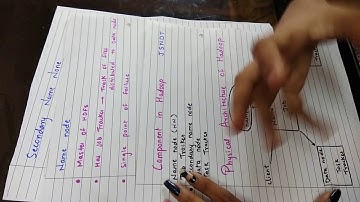 Secondary Name Node
Name node
• Master of HDFS
• Has Job Tracker → Track of files
distributed to data node
• Single point of failure
Component in Hadoop JSNDT
Name node (NN)
Job Tracker
Secondary name node
Data node
Task Tracker
Physical Architecture of Hadoop
client
Data node
Task
Tracker